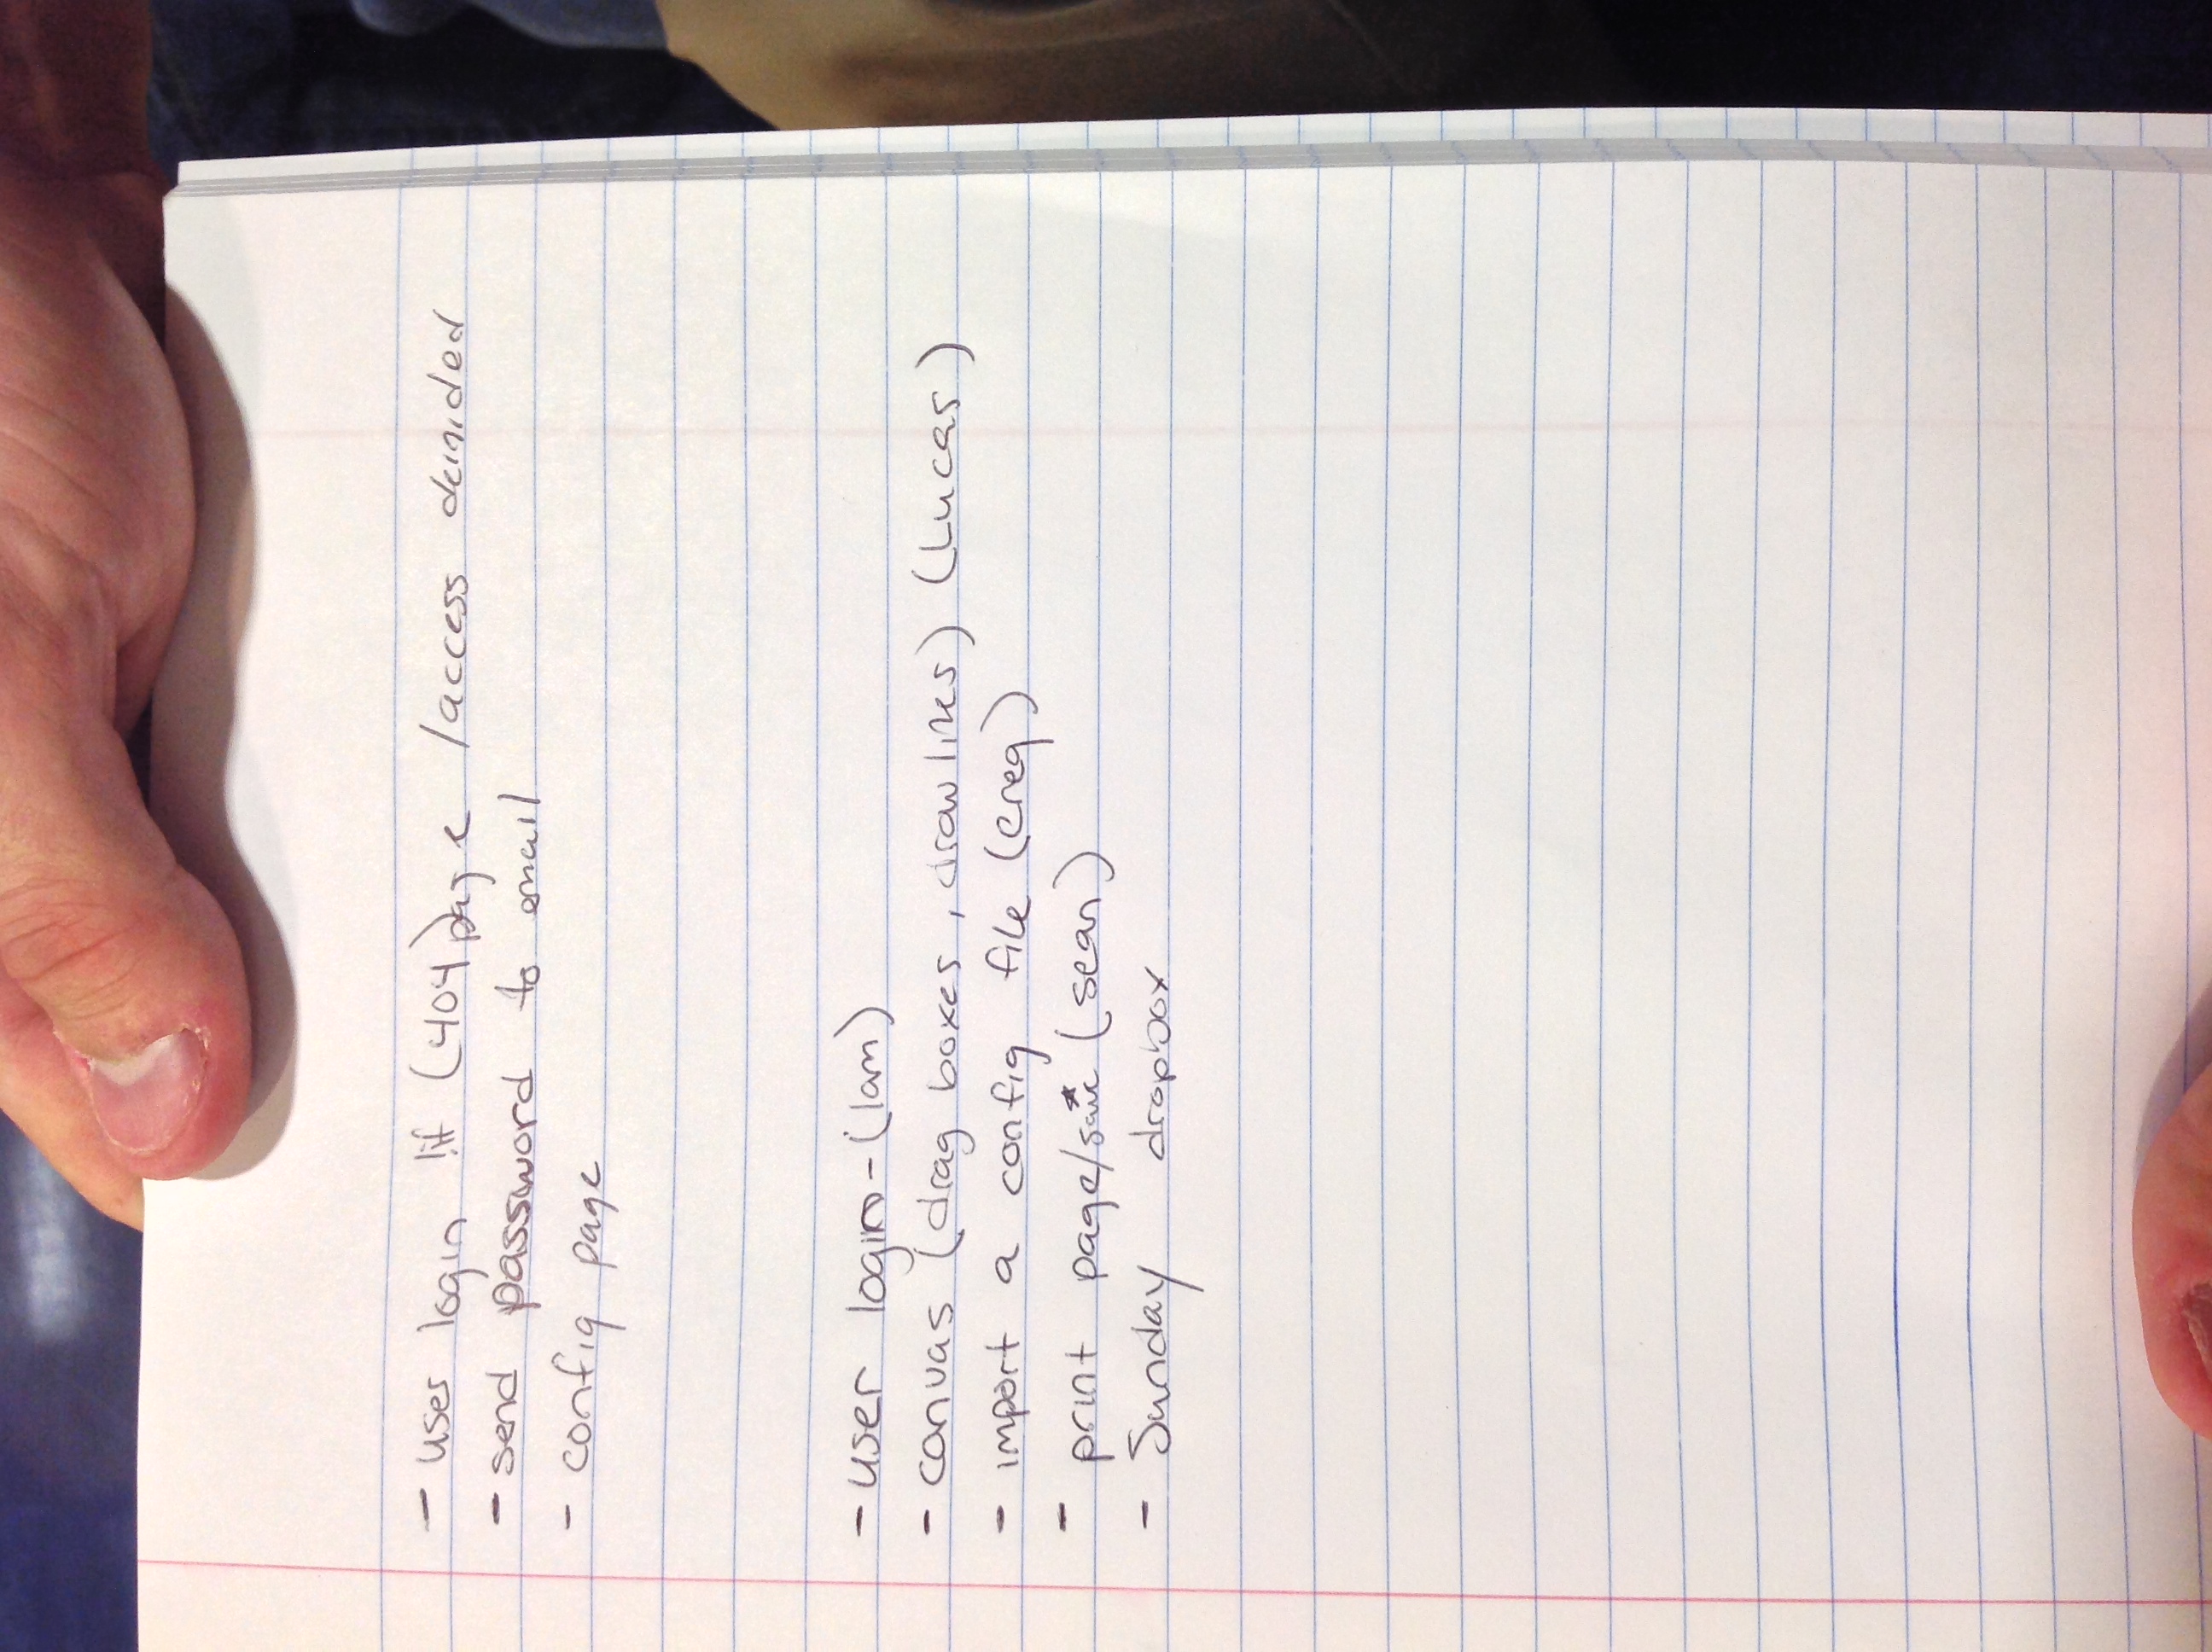 - user login !if (404) page /access deinided
- send password to email
- config page
- user login - (Iam)
- canvas (drag boxes, draw lines) (Lucas)
- import a config file (Creg)
- print page/save* (sean)
- Sunday dropbox